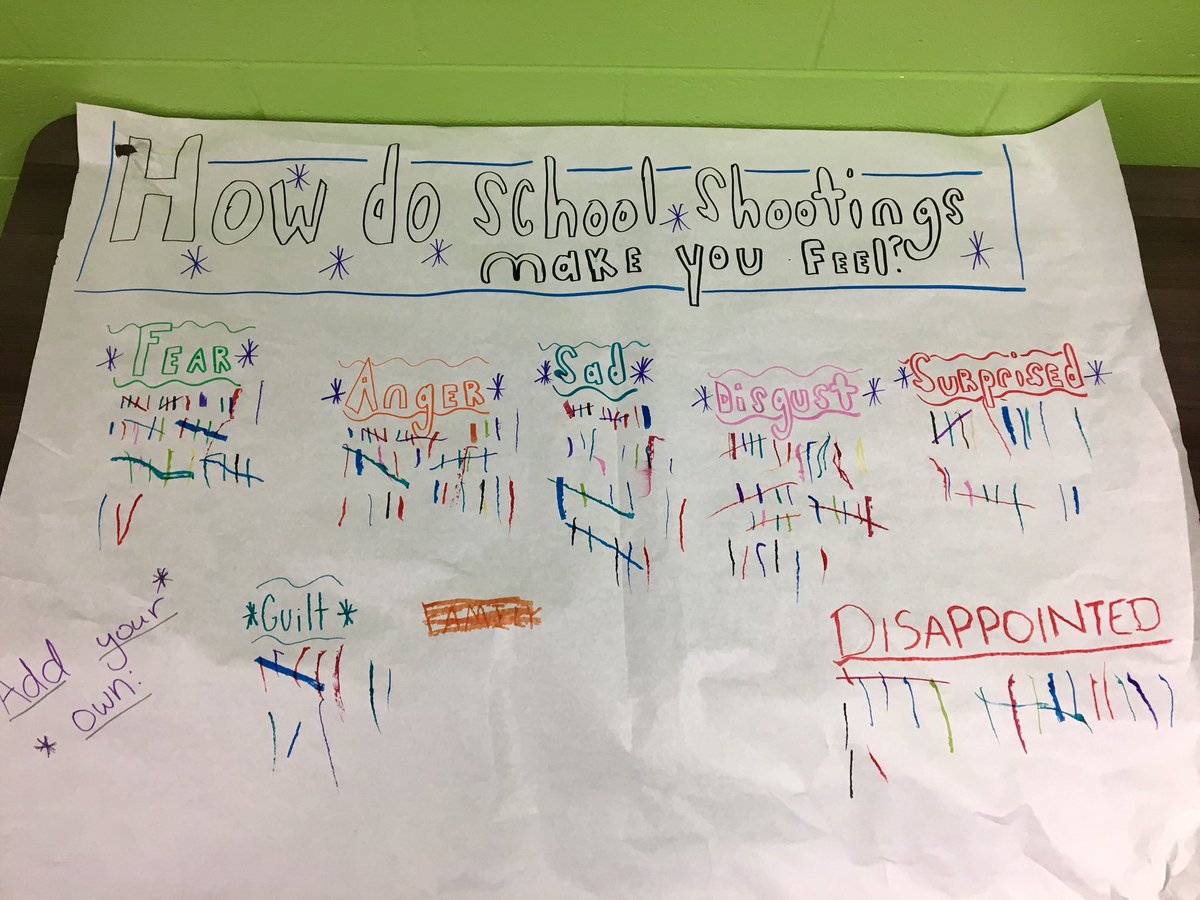 How do school shootings
make you feel?
Fear
Anger
Sad
Disgust
Surprised
Add your
own:
Guilt
DISAPPOINTED